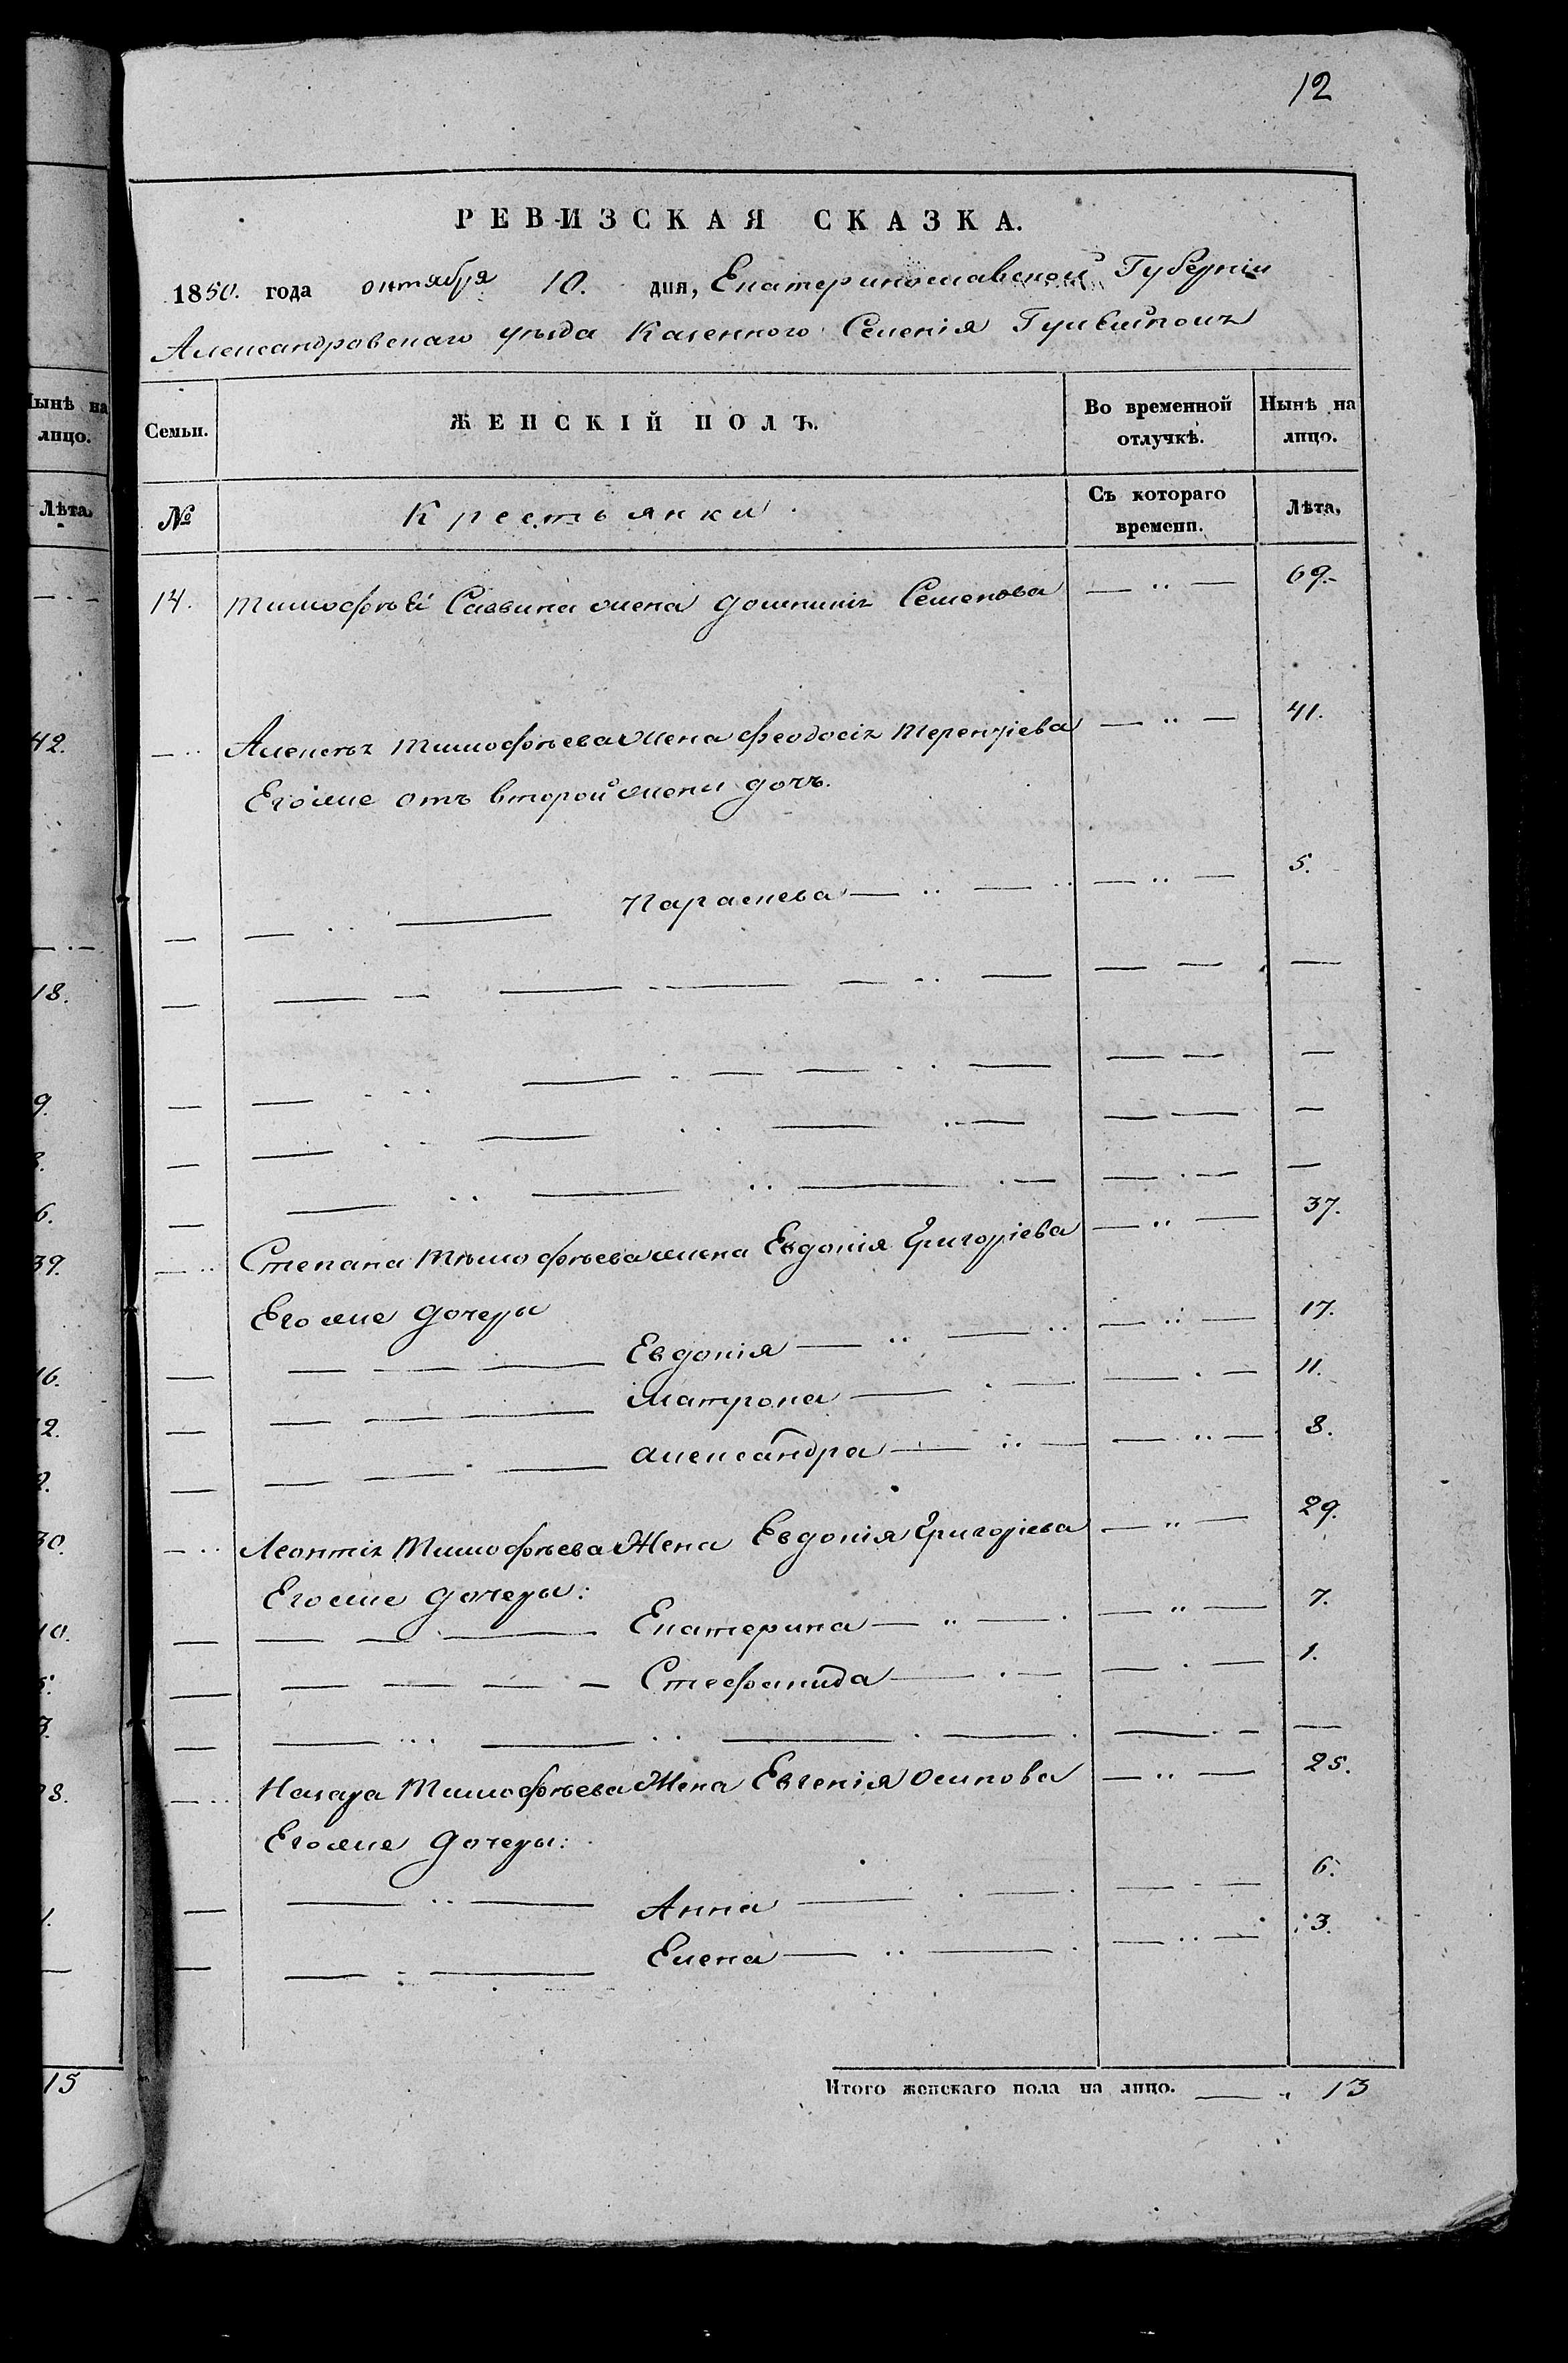 12
РЕВИЗСКАЯ СКАЗКА.
1850. года октября 10. дня, Екатеринославской Губерніи
Александровскаго уѣзда Казенного Селенія Гуляйполя
Семьи. ЖЕНСКІЙ ПОЛЪ. Во временной отлучкѣ. Нынѣ на лицо.
№ Крестьянки Съ котораго времени. Лѣта,
14. Тимофѣя Саввина жена Домникія Семенова — 〃 — 69.
Алексѣя Тимофѣева жена Феодосія Терентіева — 〃 — 41.
Его же отъ второй жены дочь.
Параскева — 〃 — 5.
Степана Тимофѣева жена Евдокія Григоріева — 〃 — 37.
Его же дочеры
Евдокія — 〃 — 17.
Матрона — 11.
Александра — 〃 — 8.
Леонтія Тимофѣева Жена Евдокія Григоріева — 〃 — 29.
Его же дочеры:
Екатерина — 〃 — 7.
Стефанида — 1.
Назара Тимофѣева Жена Евгенія Осипова — 〃 — 25.
Его же дочеры:
Анна — 6.
Елена — 〃 — 3.
Итого женскаго пола на лицо. — 〃 13
Нынѣ на
лицо.
Лѣта.
42.
18.
9.
6.
39.
16.
30.
10.
15